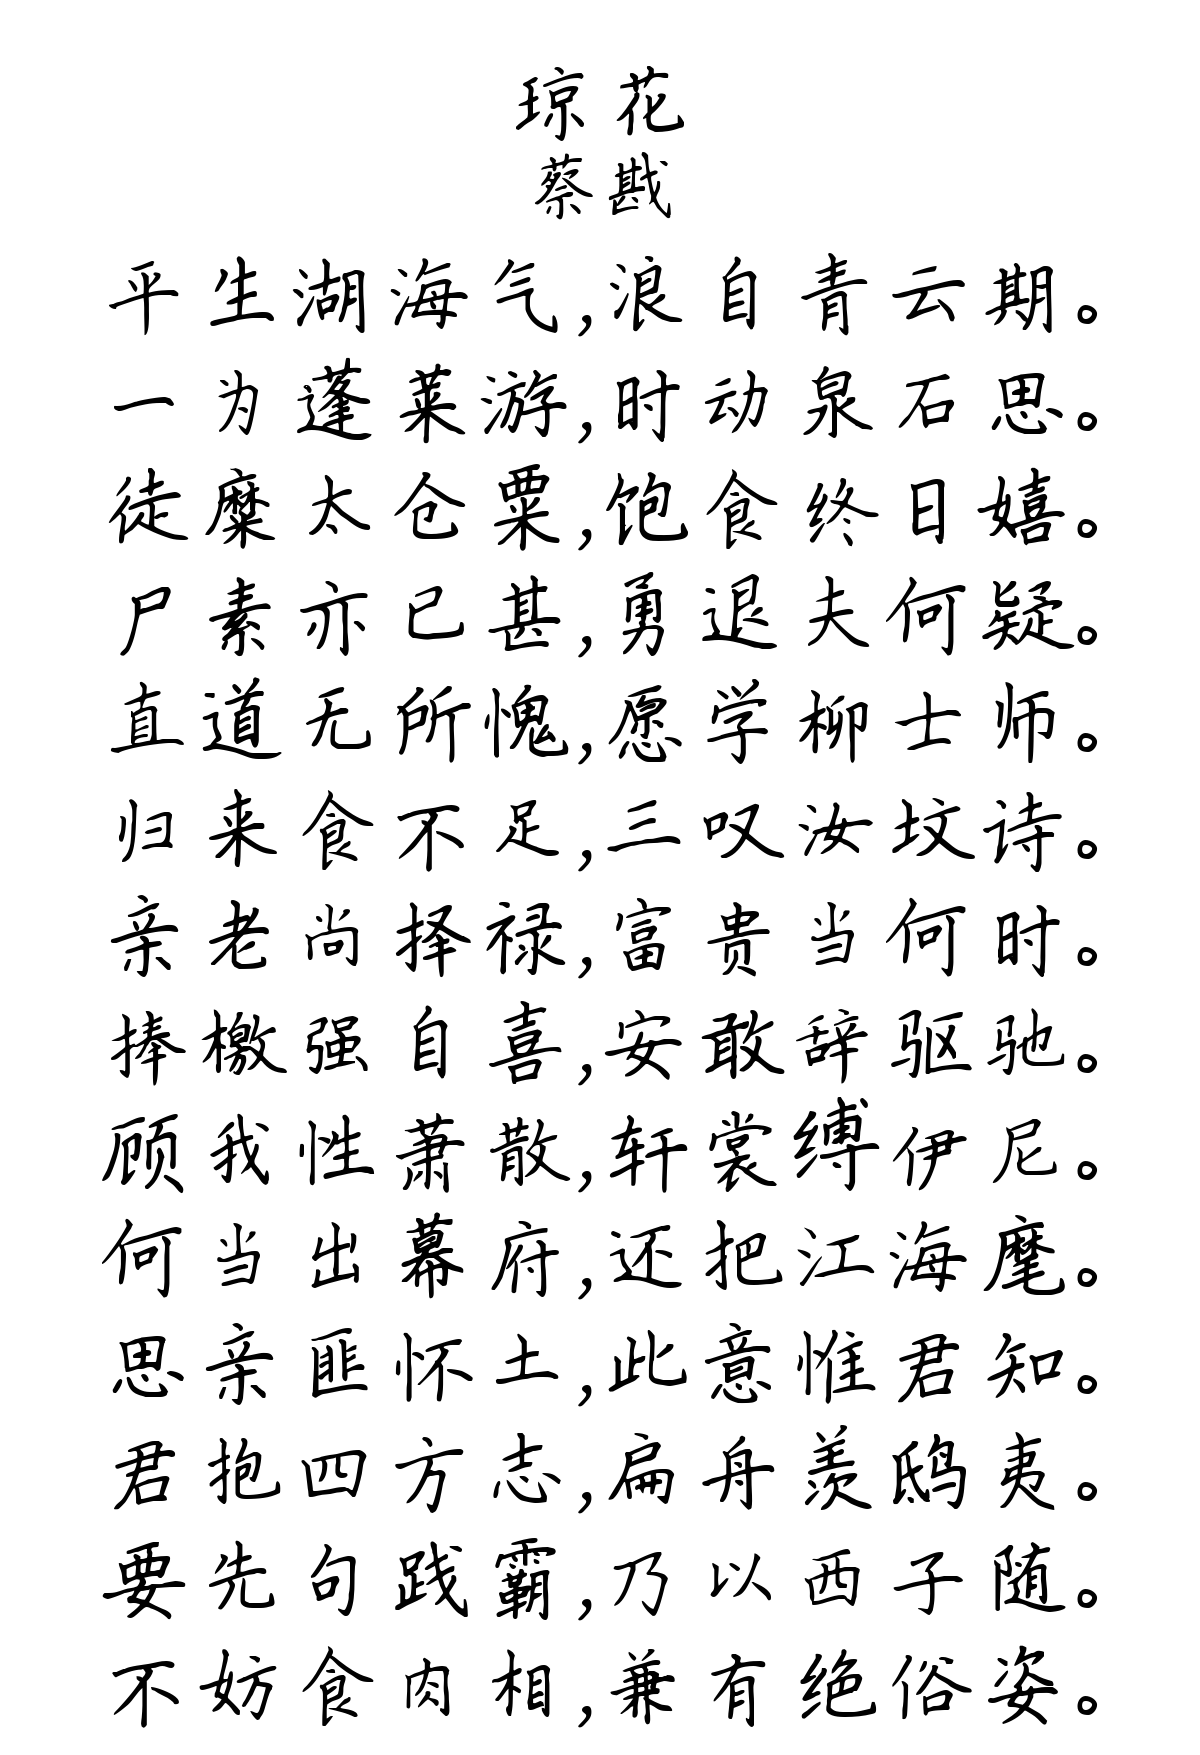 琼花
蔡戡
平生湖海气,浪自青云期。
一为蓬莱游,时动泉石思。
徒糜太仓粟,饱食终日嬉。
尸素亦已甚,勇退夫何疑。
直道无所愧,愿学柳士师。
归来食不足,三叹汝坟诗。
亲老尚择禄,富贵当何时。
捧檄强自喜,安敢辞驱驰。
顾我性萧散,轩裳缚伊尼。
何当出幕府,还把江海麾。
思亲匪怀土,此意惟君知。
君抱四方志,扁舟羡鸱夷。
要先句践霸,乃以西子随。
不妨食肉相,兼有绝俗姿。